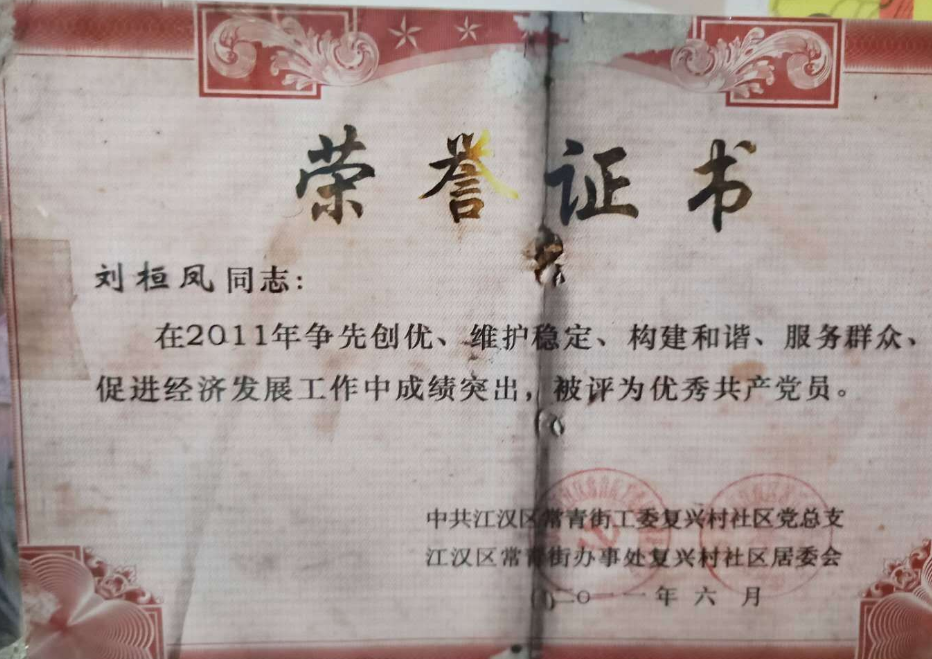 荣誉证书
刘桓凤同志：
在2011年争先创优、维护稳定、构建和谐、服务群众、
促进经济发展工作中成绩突出，被评为优秀共产党员。
中共江汉区常青街工委复兴村社区党总支
江汉区常青街办事处复兴村社区居委会
二〇一一年六月